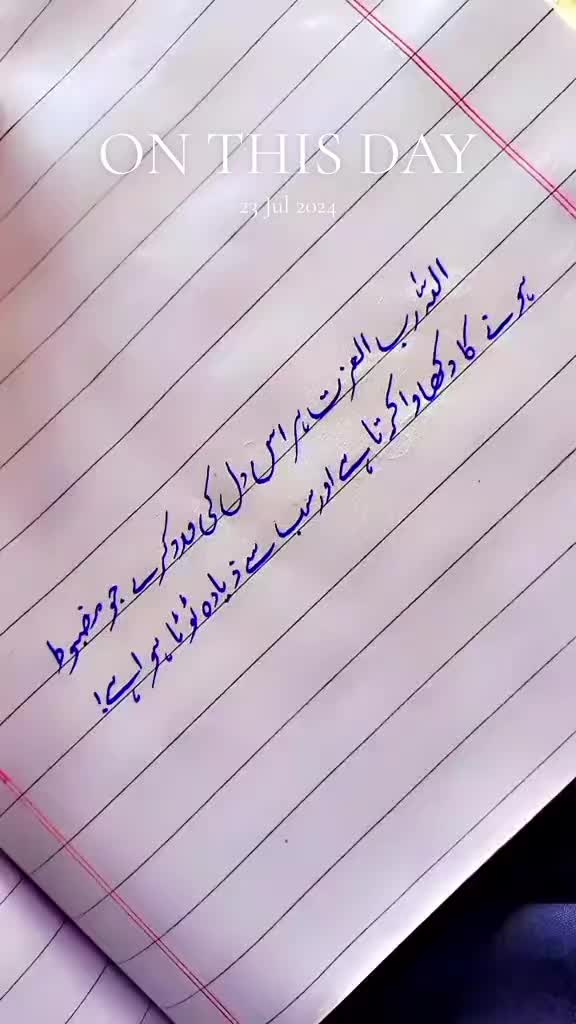 ON THIS DAY
23 Jul 2024
اللہ رب العزت ہر اس دل کی مدد کرے جو مضبوط
ہونے کا دکھاوا کرتا ہے اور سب سے زیادہ ٹوٹا ہوا ہے!